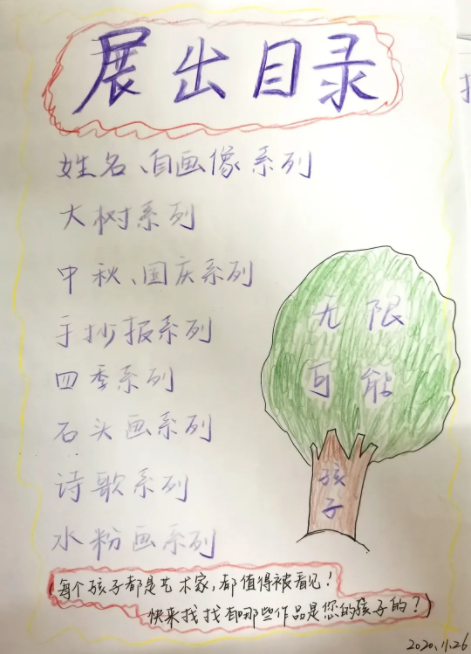 展出目录
姓名、自画像系列
大树系列
中秋、国庆系列
手抄报系列
四季系列
石头画系列
诗歌系列
水粉画系列
无限
可能
孩
子
每个孩子都是艺术家,都值得被看见!
快来找找看哪些作品是您的孩子的?
2020.11.26